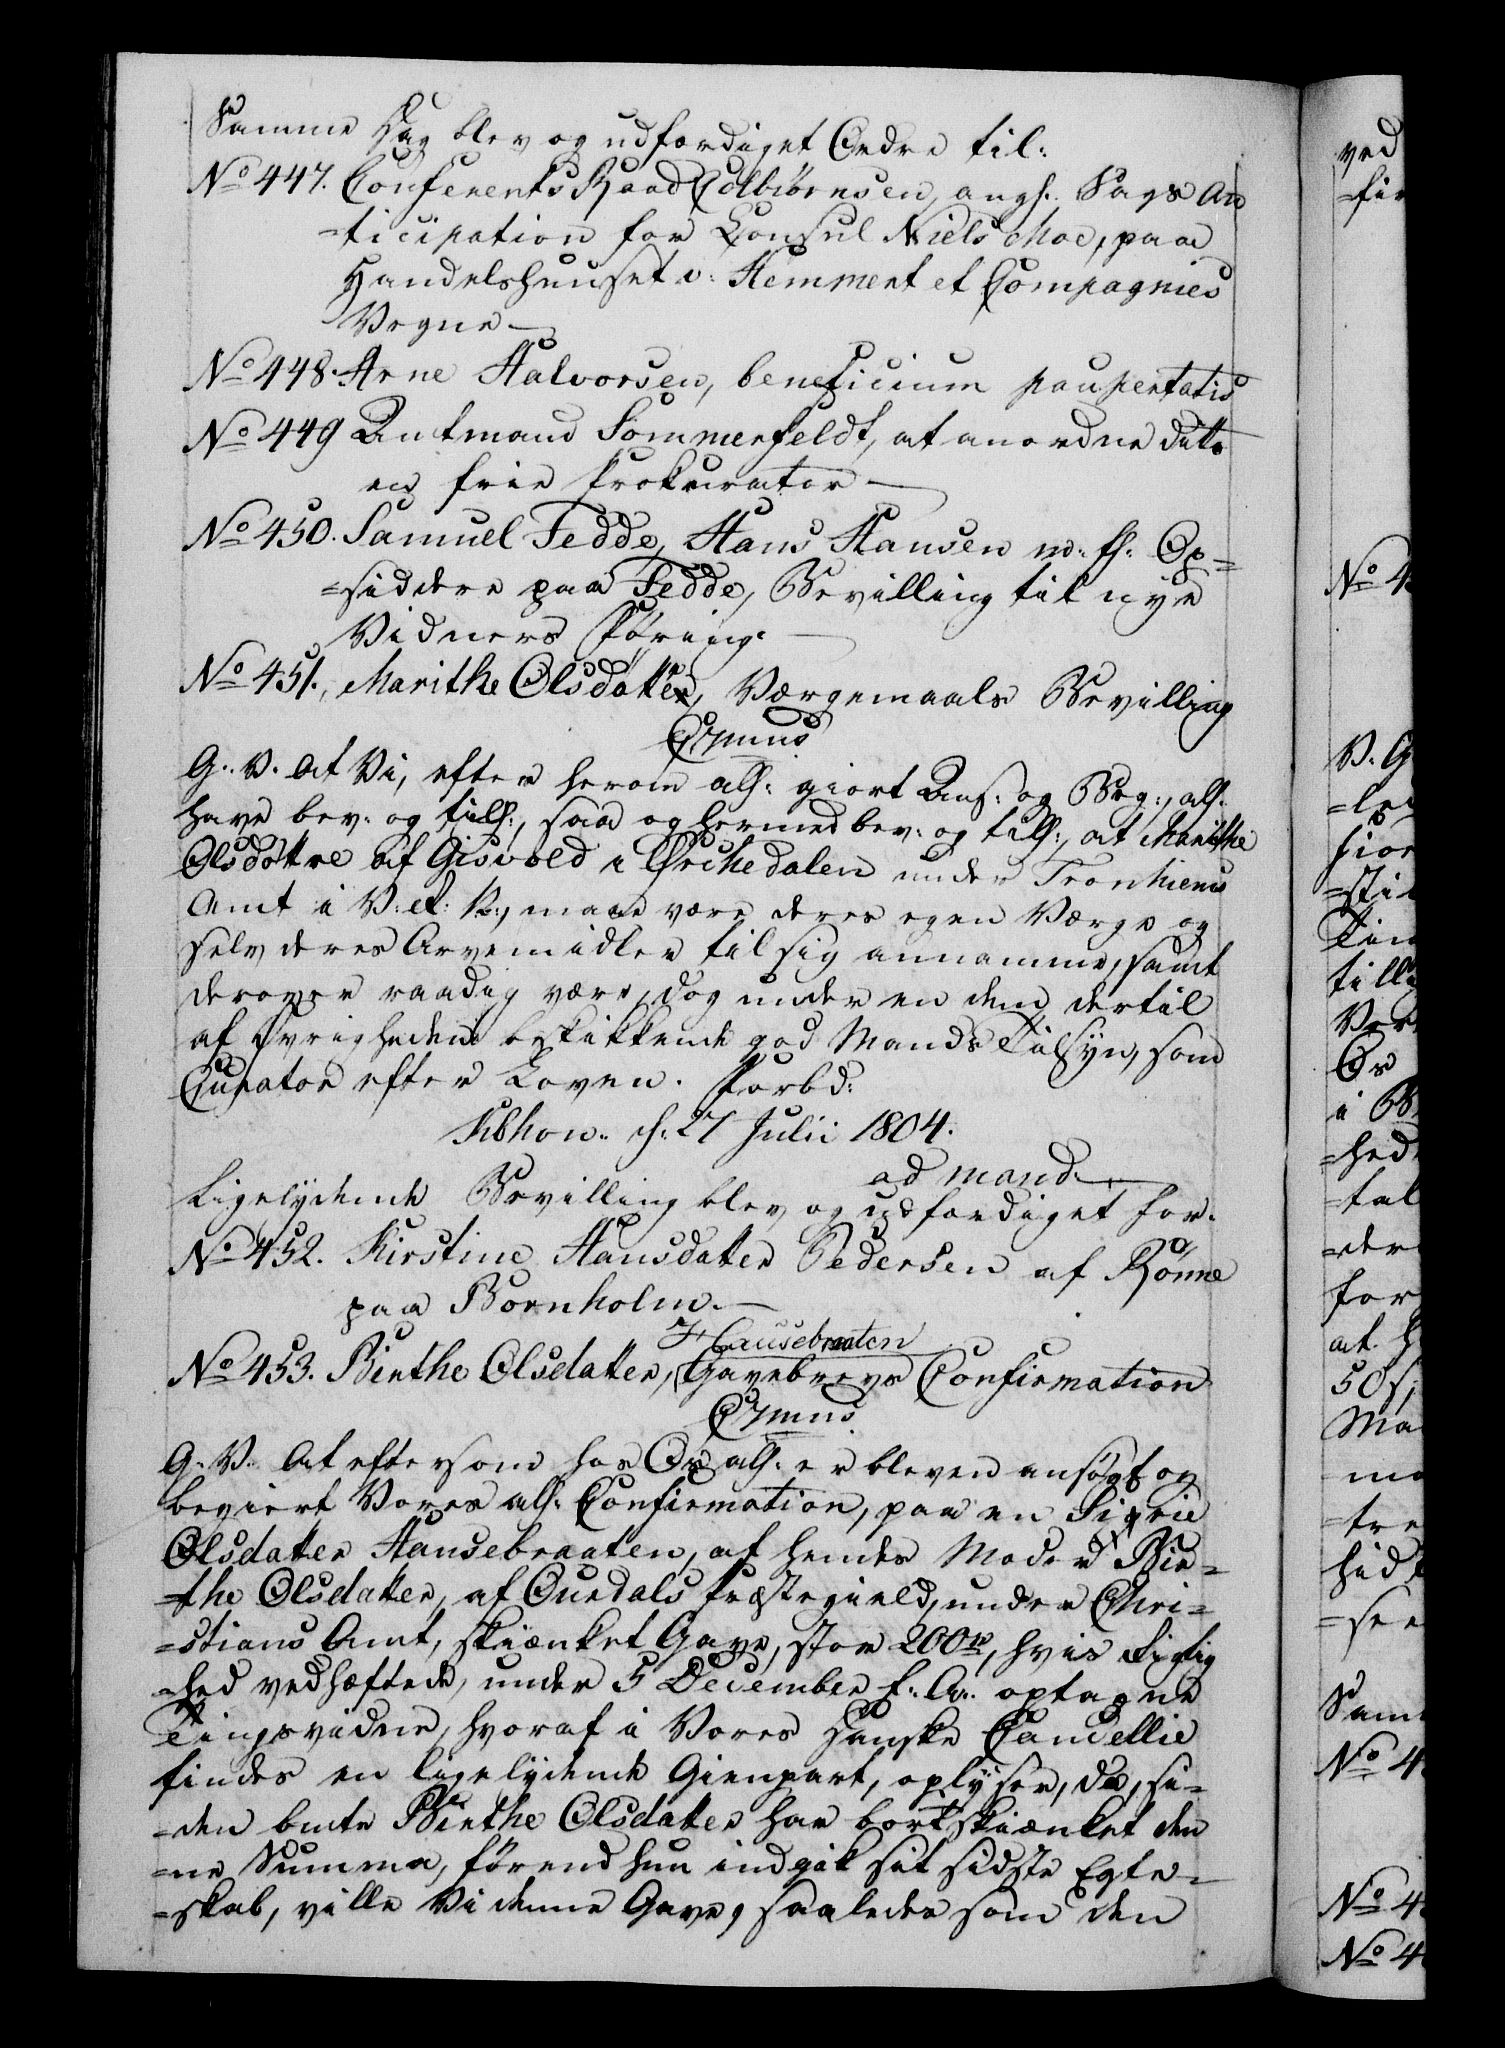 Samme Dag blev og udfærdiget Ordre til:
No 447. Conferents Raad Colbiørnsen, angl: Sags An
=ticipation for Consul Niels Moe, paa
Handelshuuset v: Hemmert et Compagnies
Vegne —
No 448. Arne Halvorsen, beneficium paupertatis
No 449 Amtmand Sommerfeldt, at anordne ditto
en frie Prokurator —
No 450. Samuel Fedde, Hans Hansen m: fl: Op=
=siddere paa Fedde, Bevilling til nye
Vidners Føring. —
No 451. Marithe Olsdatter, Værgemaals Bevilling
G. V. at Vi, efter herom all: giort Ans: og Beg:, all:
have bev: og till:, saa og hermed bev: og till:, at Marithe
Olsdøttre af Gisvold i Orchedalen under Tronhiems
Amt i V: et: R:, maae være deres egen Værge og
selv deres Arvemidler til sig annamme, samt
derover raadig være, dog under en dem dertil
af Øvrigheden beskikkende god Mands Tilsyn, som
Curator efter Loven. Forbd:
Kbhon. d: 27 Julii 1804.
ad mand.
Ligelydende Bevilling blev og udfærdiget for:
No 452. Kirstine Hansdatter Pedersen af Rønne
paa Bornholm. —
Hausebraaten
No 453. Birthe Olsdatter, Gavebrevs Confirmation
G. V. At eftersom hos Os all: er bleven ansøgt og
begiert Vores all: Confirmation, paa en Sigrie
Olsdatter Hansebraaten, af hendes Moder Bir=
=the Olsdatter, af Ourdals Præstegield, under Chri=
=stians Amt, skiænket Gave, stor 200 rd, hvis Rigtig
=hed vedhæftede, under 5 December f: A: optagne
Tingsvidne, hvoraf i Vores Danske Cancellie
findes en ligelydende Gienpart, oplyser, da, si=
=den bmte Birthe Olsdatter har bortskiænket den
=ne Summa, førend hun indgik sit sidste Egte=
=skab, ville Vi denne Gave, saaledes som den